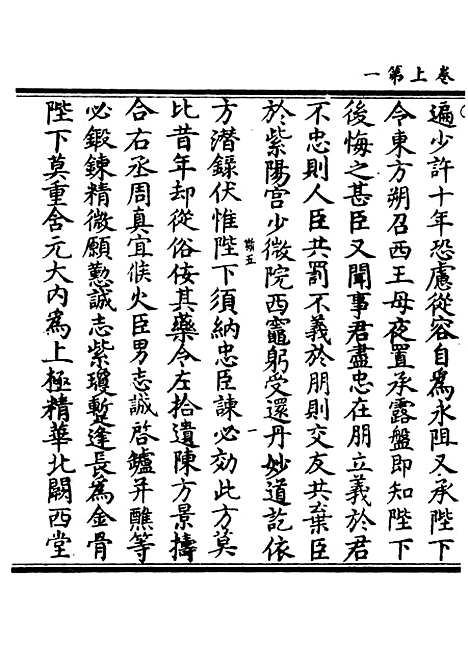 卷上第一
遍少許十年恐慮從容自為永阻又承陛下
令東方朔召西王母夜置承露盤即知陛下
後悔之甚臣又聞事君盡忠在朋立義於君
不忠則人臣共罰不義於朋則交友共棄臣
於紫陽宮少微院西竈躬受還丹妙道訖依
方潛錄伏惟陛下須納忠臣諫必効此方莫
比昔年却從俗侫其藥令左拾遺陳方景擣
合右丞周真宜候火臣男志誠啓鑪并醮等
必鍛鍊精微願懃誠志紫瓊蹔逢長為金骨
陛下莫重舍元大內為上極精華北闕西堂